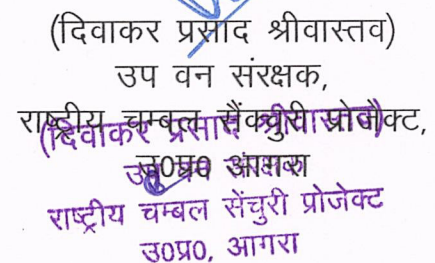 (दिवाकर प्रसाद श्रीवास्तव)
उप वन संरक्षक,
राष्ट्रीय चम्बल सैंक्चुरी प्रोजैक्ट,
उ0प्र0 आगरा
(दिवाकर प्रसाद श्रीवास्तव)
उप वन संरक्षक
राष्ट्रीय चम्बल सेंचुरी प्रोजेक्ट
उ0प्र0, आगरा